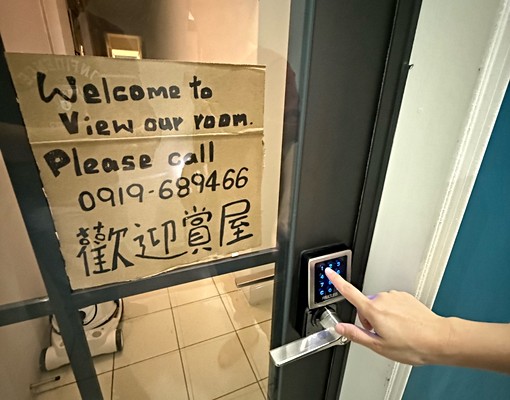 Welcome to
View our room.
Please call
0919-689466
歡迎賞屋